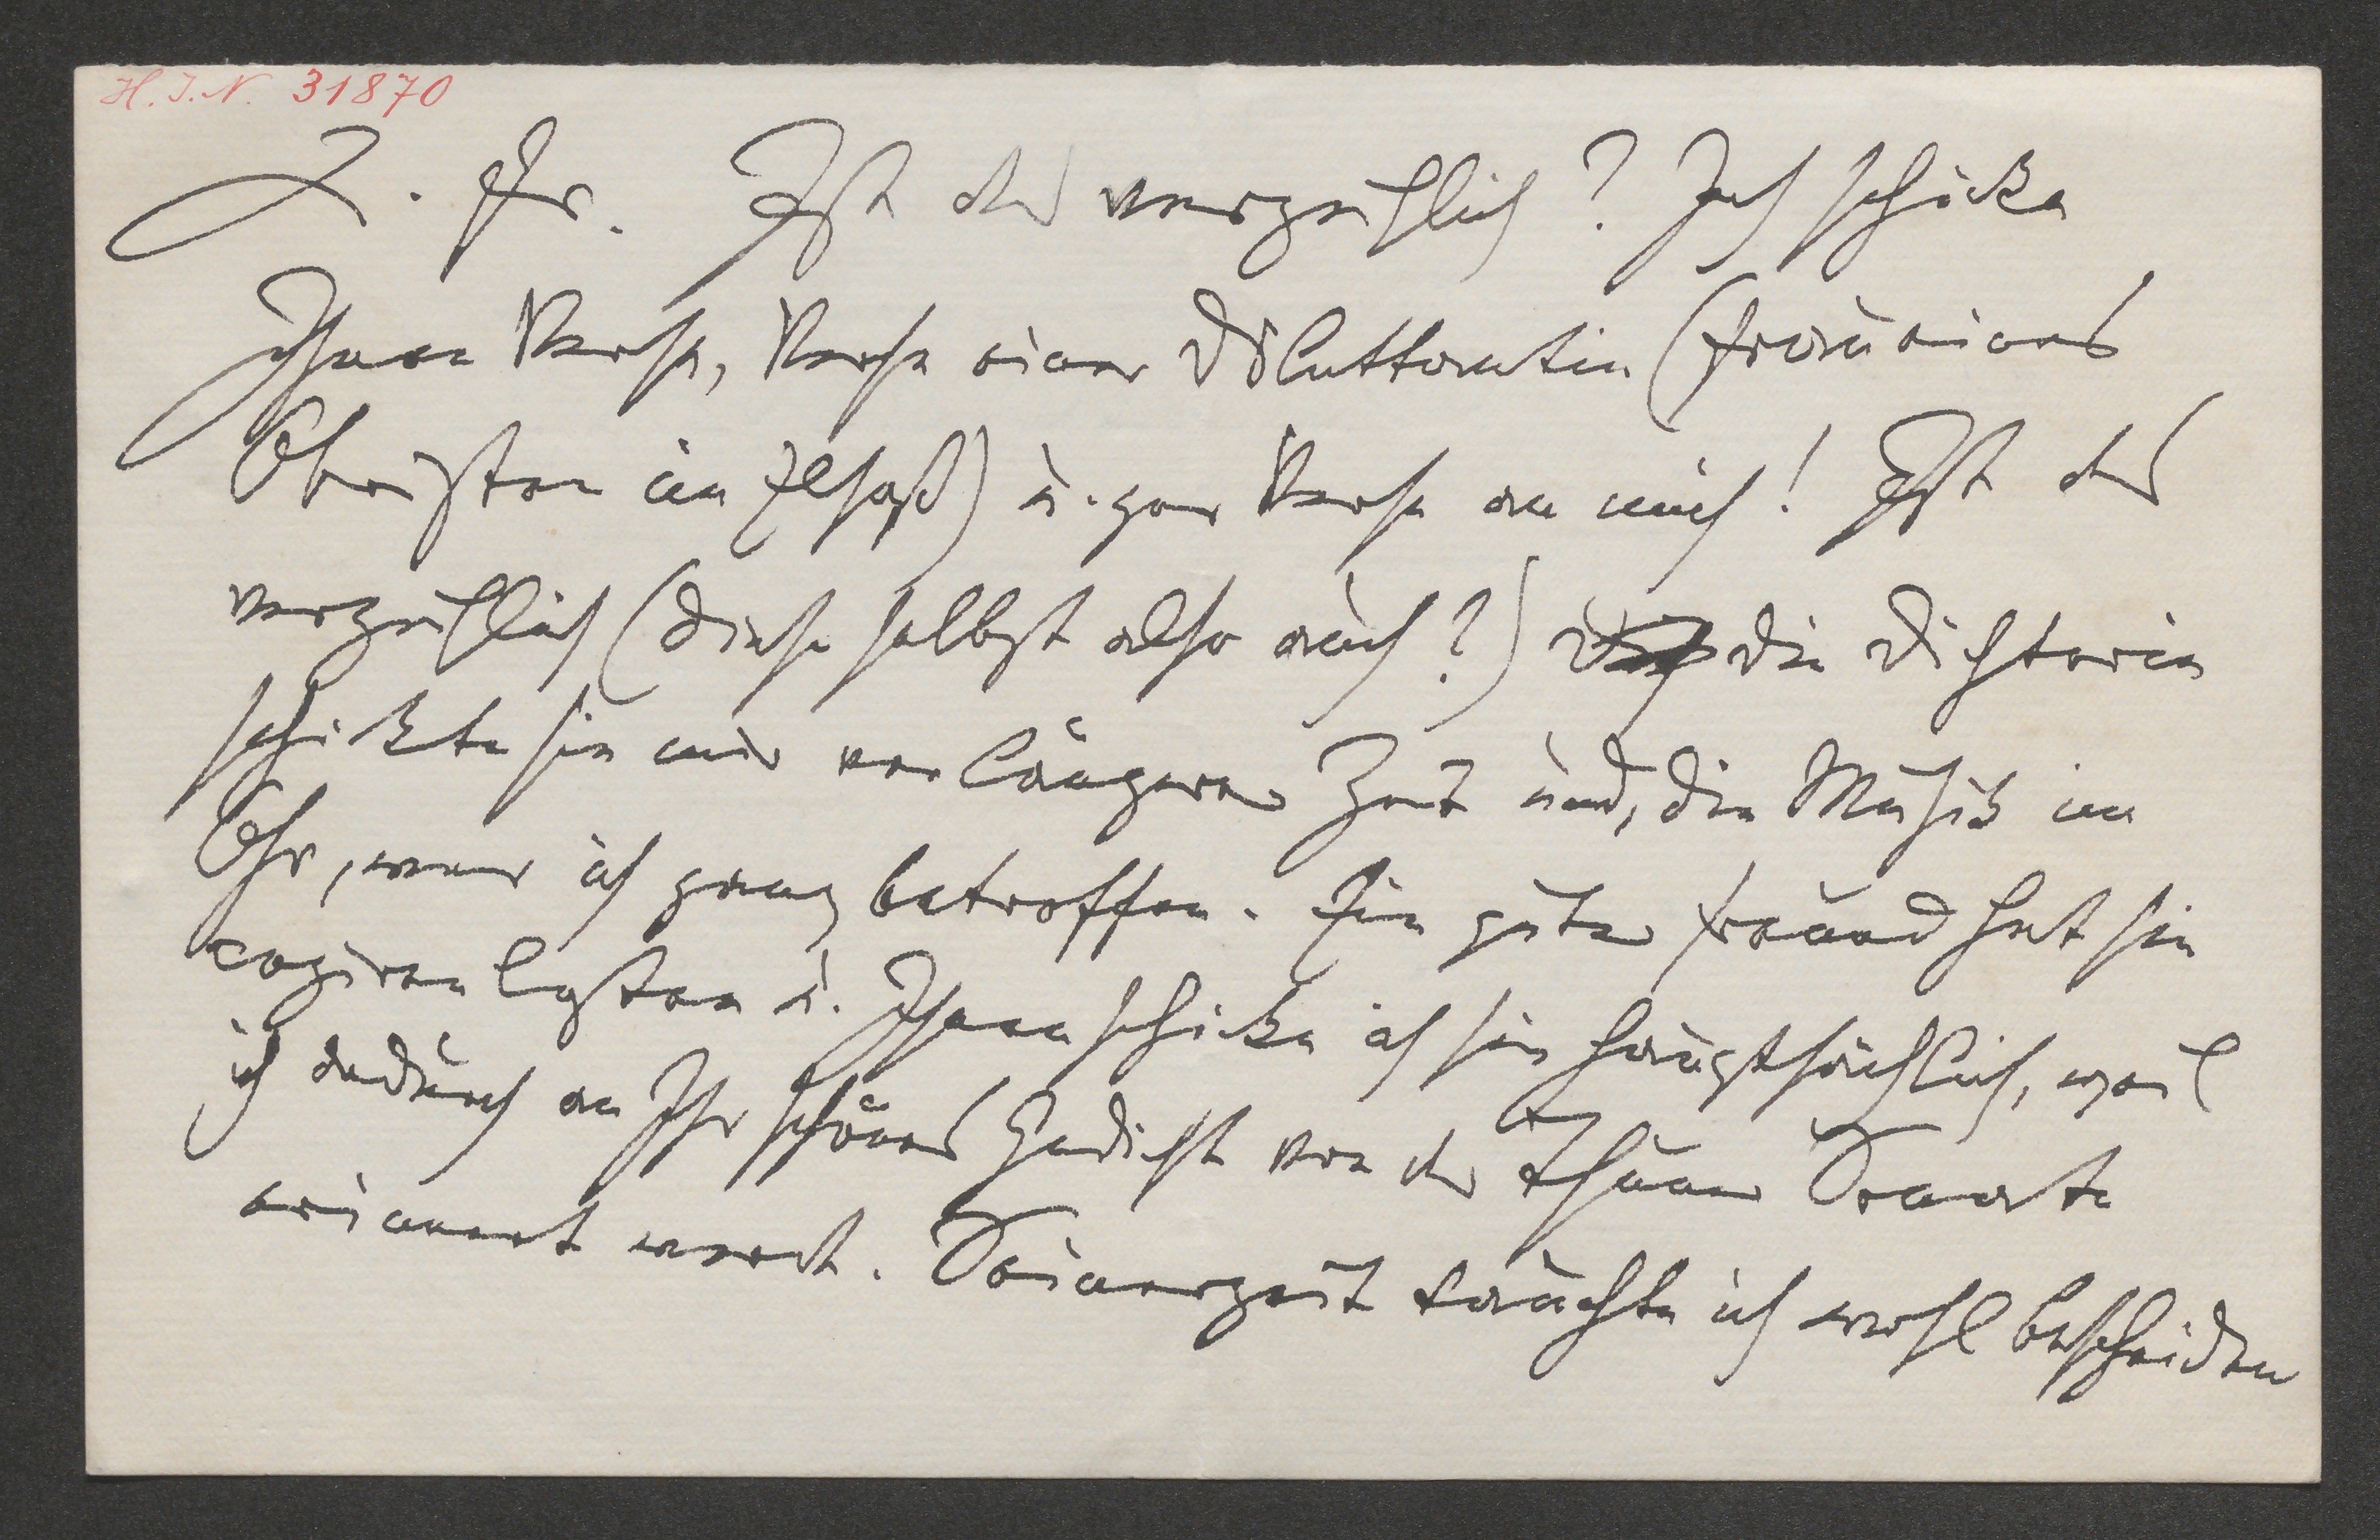 H.I.N. 31870
L. Fr. Ist das verzeihlich? Ich schicke
Ihnen Verse, Verse einer Dilettantin (Frau eines
Obristen im Elsaß) u. gar Verse an mich! Ist das
verzeihlich (diese selbst also auch?) die Dichterin
schickte sie mir vor längerer Zeit und, die Musik im
Ohr, war ich ganz betroffen. Ein guter Freund hat sie
copiren lassen u. Ihnen schicke ich sie hauptsächlich, weil
ich dadurch an Ihr schönes Gedicht von der Thuner
erinnert werde. Seinerzeit dachte ich wohl bescheiden